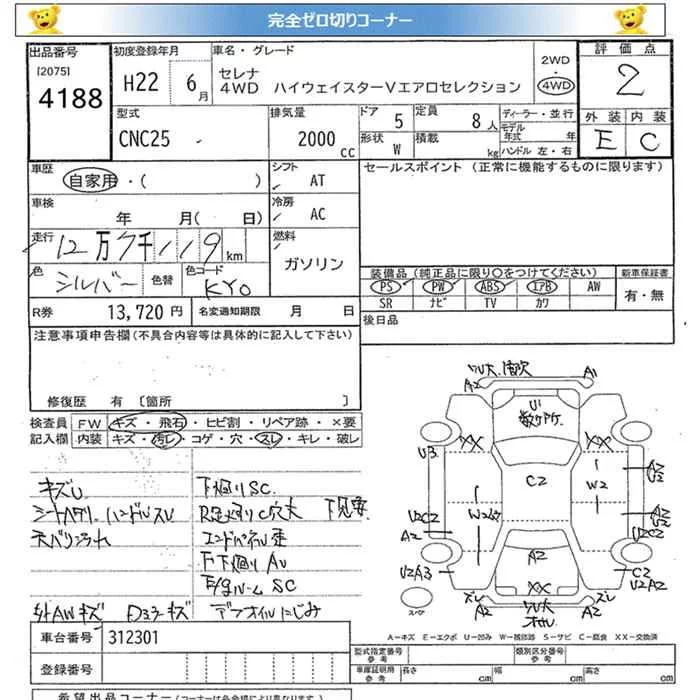 完全ゼロ切りコーナー
出品番号
[2075]
4188
初度登録年月
H22 6月
車名・グレード
セレナ
4WD ハイウェイスターVエアロセレクション
2WD
4WD
評価点
2
外装 内装
E C
型式
CNC25
排気量
2000 cc
ドア 5
形状 W
定員 8人
積載 kg
ディーラー・並行
モデル年式 年
ハンドル 左・右
車歴
自家用・( )
シフト
AT
車検
年 月( 日)
冷房
AC
走行
12万7千119km
燃料
ガソリン
色
シルバー
色替
色コード
KY0
R券 13,720円
名変通知期限 月 日
セールスポイント (正常に機能するものに限ります)
装備品(純正品に限り○をつけてください)
PS PW ABS エアB AW
SR ナビ TV カワ
新車保証書
有・無
後日品
注意事項申告欄(不具合内容等は具体的に記入して下さい)
修復歴 有 [箇所 ]
検査員記入欄
FW キズ・飛石・ヒビ割・リペア跡・×要
内装 キズ・汚レ・コゲ・穴・スレ・キレ・破レ
キズU
下廻りSC
エンドパネル歪
下廻りAU
外AWキズ
デフオイルにじみ
A2 A1
U1
XX XX
U3
C2
W2
A2
U2
U2C2
A2
A2
U2
U2C2
U2A3
A2
XX
C2
U2A2
ズレ
A2
ズレ
A2
スペア
A-キズ E-エクボ U-凹み W-補修跡 S-サビ C-腐食 XX-交換済
車台番号 312301
登録番号
型式指定番号
参考
類別区分番号
参考
車庫証明用
参考
長さ cm
幅 cm
高さ cm
希望出品コーナー